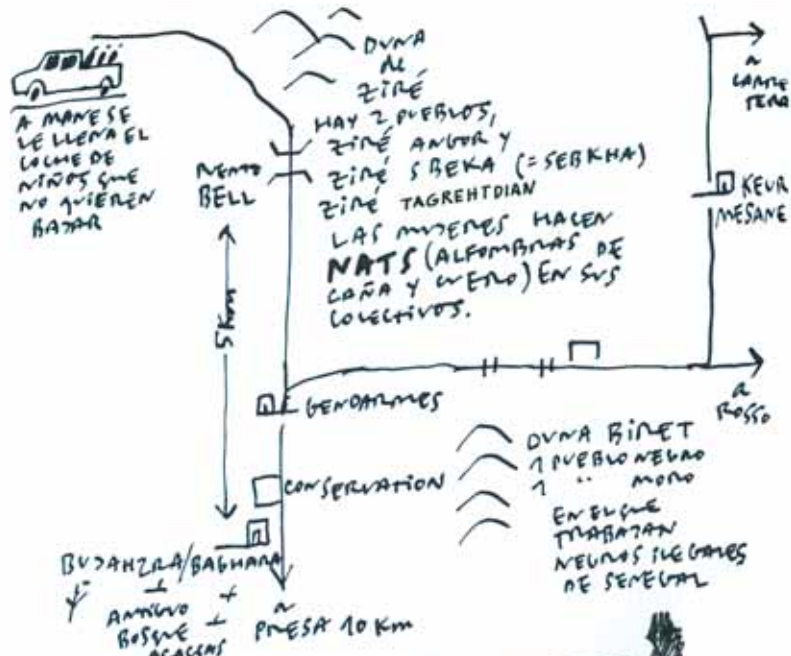 A MANE SE
LE LLENA EL
COCHE DE
NIÑOS QUE
NO QUIEREN
BAJAR
DUNA
de
ZIRÉ
HAY 2 PUEBLOS,
ZIRÉ ANGOR Y
ZIRÉ SBEKA (=SEBKHA)
ZIRÉ TAGREHTDIAN
LAS MUJERES HACEN
NATS (ALFOMBRAS DE
CAÑA Y CUERO) EN SUS
COLECTIVOS.
BELL
5 Km
a
CARRE
TERA
KEUR
MESANE
a
ROSSO
GENDARMES
CONSERVATION
DUNA BIRET
1 PUEBLO NEGRO
1 " MORO
EN EL QUE
TRABAJAN
NEGROS ILEGALES
DE SENEGAL
/BAGHARA
ANTIGUO
BOSQUE
ACACIAS
a
PRESA 10 Km